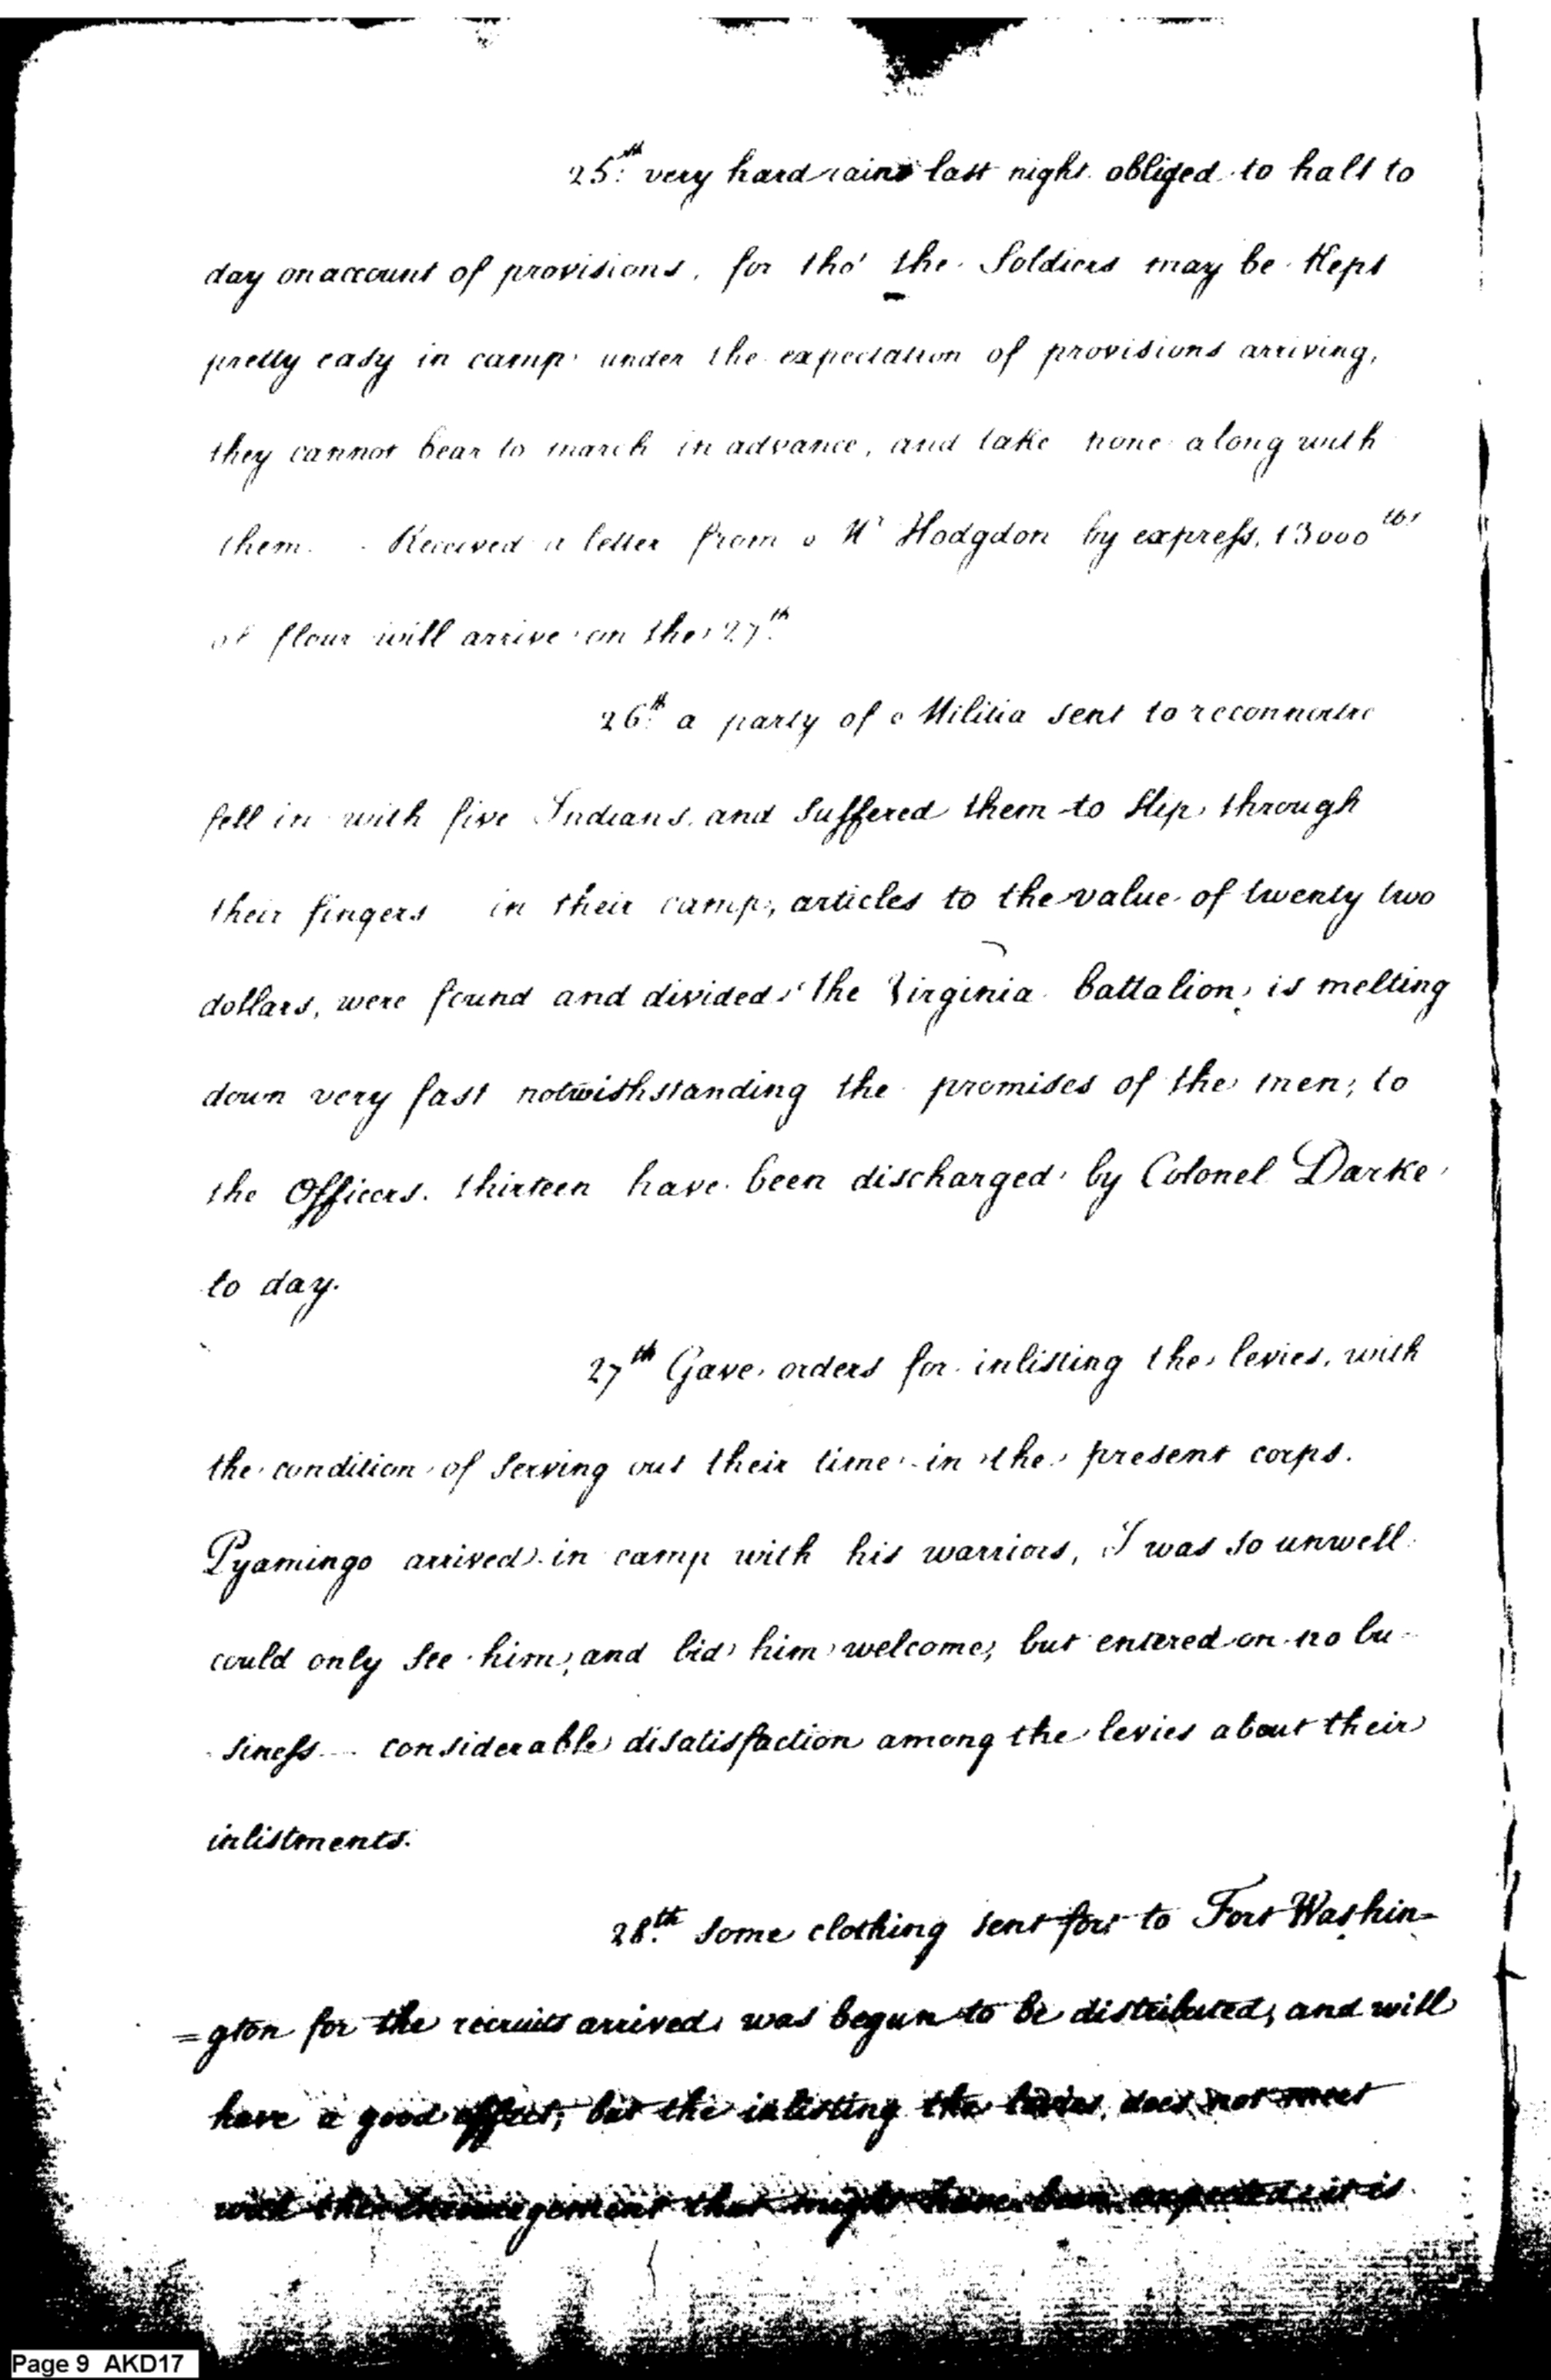 25th very hard rain last night obliged to halt to
day on account of provisions, for tho' the Soldiers may be kept
pretty easy in camp under the expectation of provisions arriving,
they cannot bear to march in advance, and take none along with
them. Received a letter from Mr Hodgdon by express, 13000 lbs
of flour will arrive on the 27th.
26th a party of Militia sent to reconnoitre
fell in with five Indians and suffered them to slip through
their fingers in their camp, articles to the value of twenty two
dollars, were found and divided the Virginia battalion, is melting
down very fast notwithstanding the promises of the men, to
the Officers. thirteen have been discharged by Colonel Darke
to day.
27th Gave orders for inlisting the levies, with
the condition of serving out their time in the present corps.
Pyamingo arrived in camp with his warriors, I was so unwell
could only see him, and bid him welcome, but entered on no bu-
siness - considerable disatisfaction among the levies about their
inlistments.
28th. some clothing sent for to Fort Washin=
=gton for the recruits arrived, was begun to be distributed, and will
have a good effect, but the inlisting the levies, does not meet
with the encouragement that might have been expected it is
Page 9 AKD17